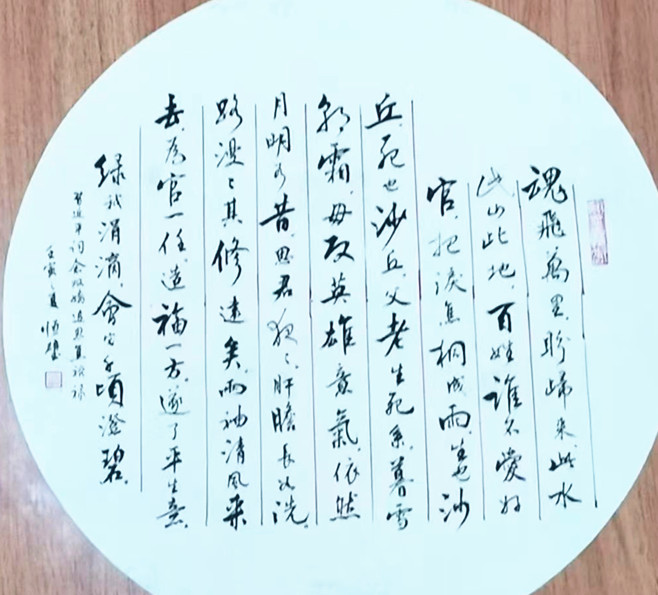 魂飛萬里,盼歸来,此水
此山此地,百姓谁不愛好
官,把淚焦桐成雨,生也沙
丘,死也沙丘,父老生死系,暮雪
朝霜,毋改英雄意氣,依然
月明如昔,思君夜々,肝膽長如洗,
路漫々其修遠矣,兩袖清風来
去,為官一任,造福一方,遂了平生意,
绿我涓滴,會它千頃澄碧,
習近平詞念奴嬌追思焦裕禄
壬寅之夏